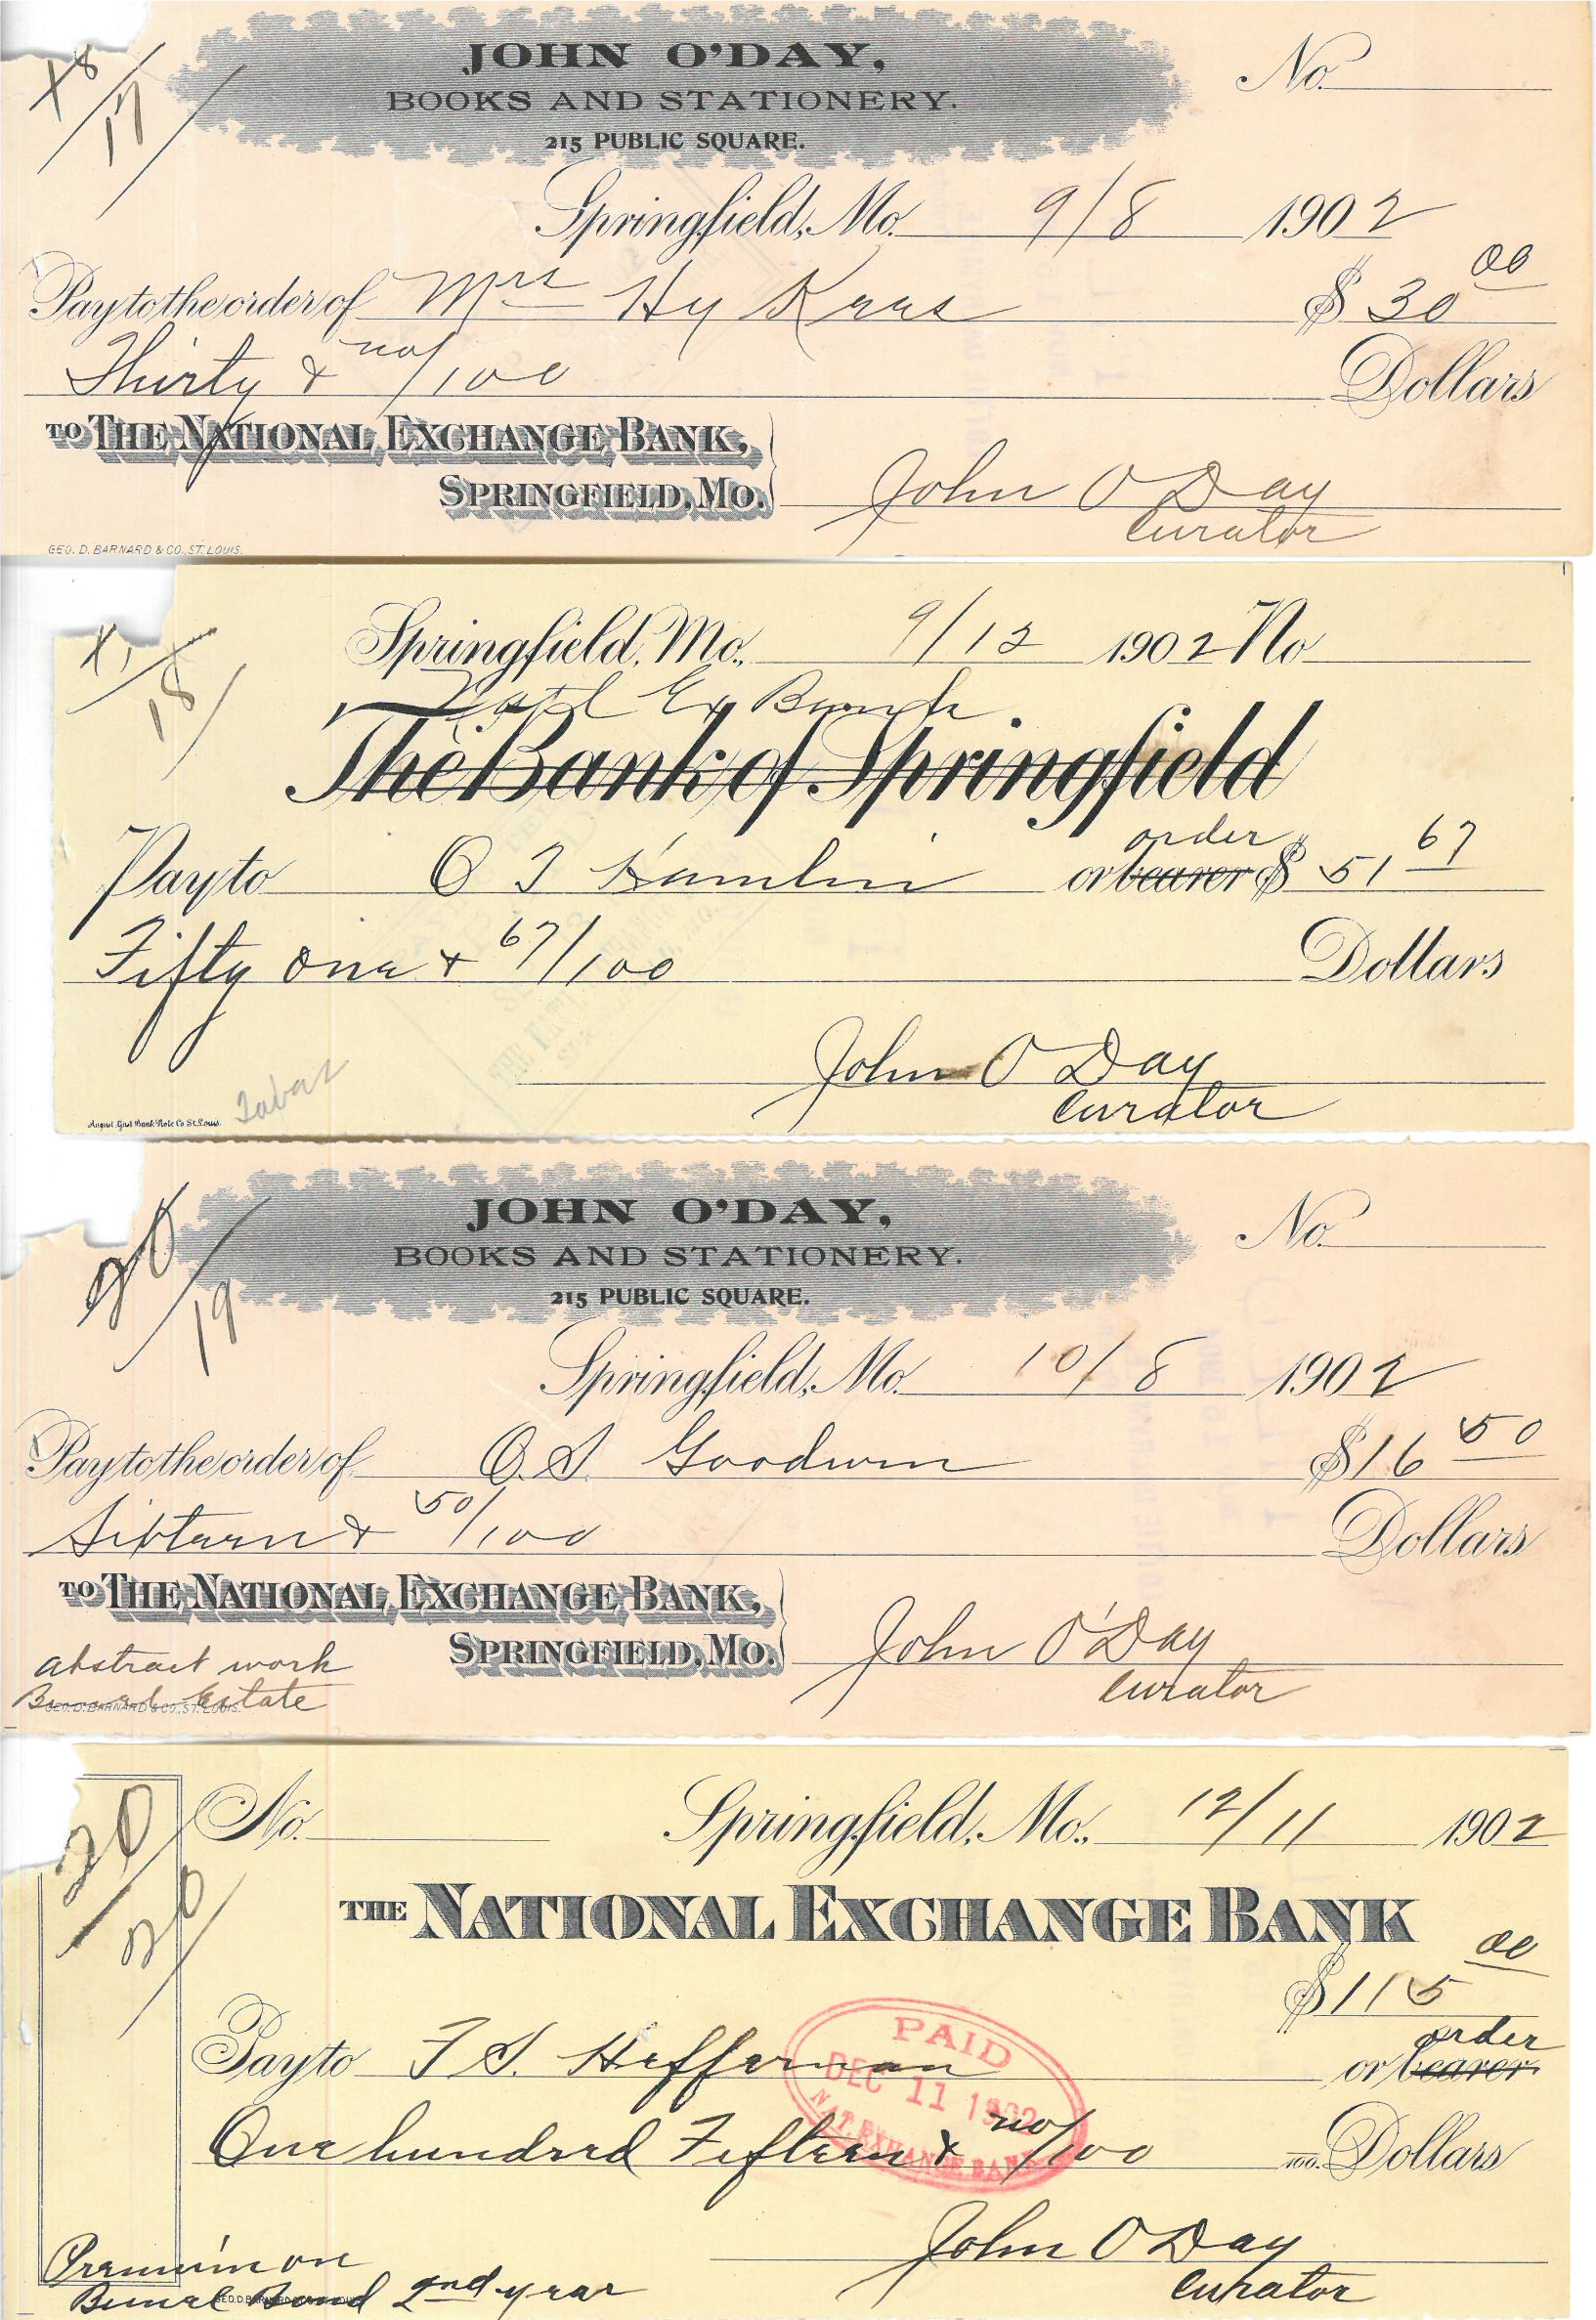 X8
17
JOHN O'DAY,
BOOKS AND STATIONERY.
215 PUBLIC SQUARE.
No.
Springfield, Mo. 9/8 1902
Pay to the order of Mrs Hy Kras $30 00
Thirty & no/100 Dollars
TO THE NATIONAL EXCHANGE BANK,
SPRINGFIELD, MO.
John O Day
Curator
GEO. D. BARNARD & CO., ST. LOUIS.
18
Springfield, Mo., 9/12 1902 No
Natl Ex Bank
The Bank of Springfield
Pay to O T Hamlin or bearer order $51 67
Fifty one & 67/100 Dollars
John O Day
Curator
August Gast Bank Note Co St. Louis.
20
19
JOHN O'DAY,
BOOKS AND STATIONERY.
215 PUBLIC SQUARE.
No.
Springfield, Mo. 10/8 1902
Pay to the order of O. S. Goodwin $16 50
Sixteen & 50/100 Dollars
TO THE NATIONAL EXCHANGE BANK,
SPRINGFIELD, MO.
John O'Day
Curator
abstract work
Estate
GEO. D. BARNARD & CO., ST. LOUIS.
20
20
No. Springfield, Mo., 12/11 1902
THE NATIONAL EXCHANGE BANK
$115 00
Pay to F S. Heffernan or bearer order
One hundred Fifteen & no/100 Dollars
PAID
DEC 11 1902
NAT. EXHANGE BANK
John O Day
Curator
Premium on
Bond 2nd year